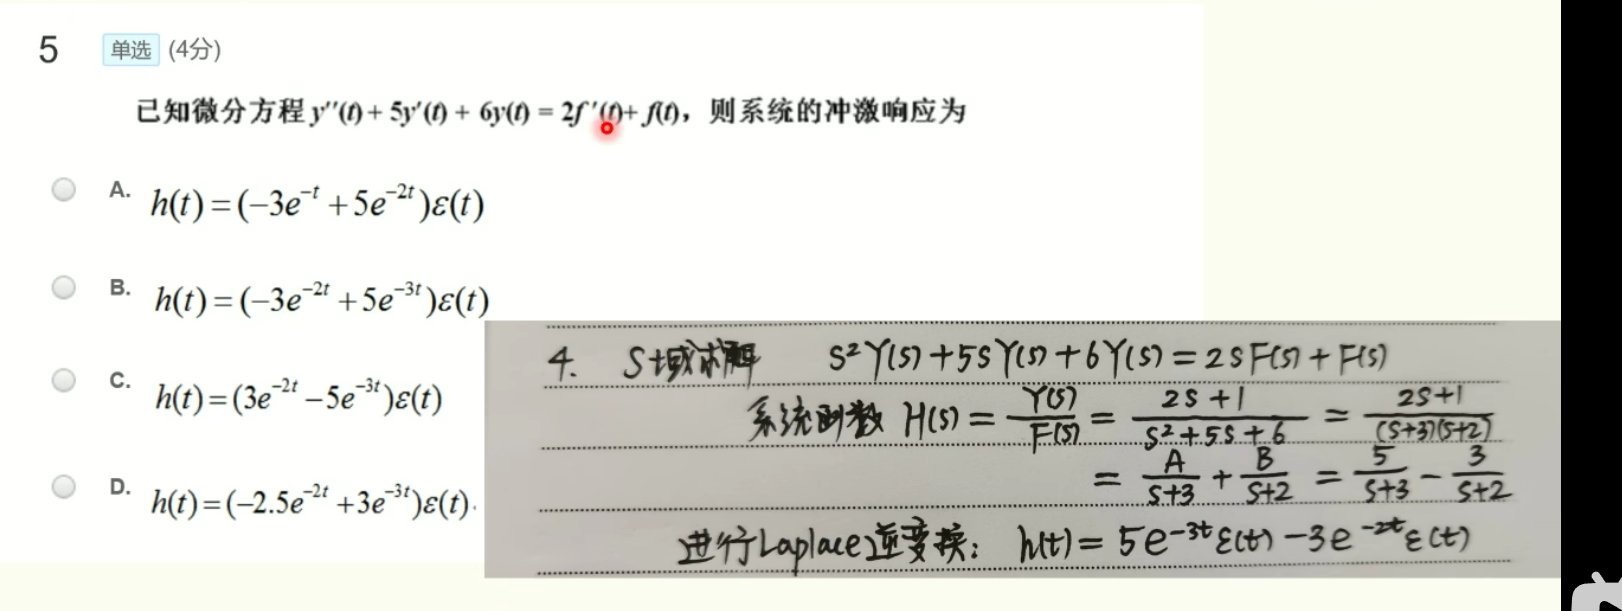 5 单选 (4分)
已知微分方程 y''(t) + 5y'(t) + 6y(t) = 2f'(t)+ f(t)，则系统的冲激响应为
A. h(t)=(−3e^{−t}+5e^{−2t})ε(t)
B. h(t)=(−3e^{−2t}+5e^{−3t})ε(t)
C. h(t)=(3e^{−2t}−5e^{−3t})ε(t)
D. h(t)=(−2.5e^{−2t}+3e^{−3t})ε(t).
4. S域求解 S²Y(S)+5SY(S)+6Y(S)=2SF(S)+F(S)
系统函数 H(S)= Y(S)/F(S) = (2S+1)/(S²+5S+6) = (2S+1)/((S+3)(S+2))
= A/(S+3) + B/(S+2) = 5/(S+3) − 3/(S+2)
进行Laplace逆变换: h(t)= 5e^{−3t}ε(t)−3e^{−2t}ε(t)